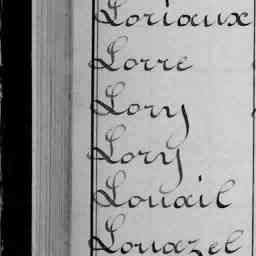 Loriaux
Lorre
Lory
Lory
Louail
Louazel